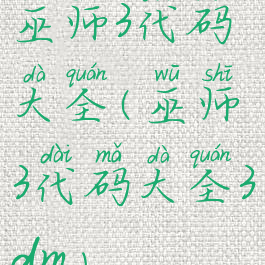 巫师3代码
dà quán wū shī
大全(巫师
dài mǎ dà quán
3代码大全3
dm)